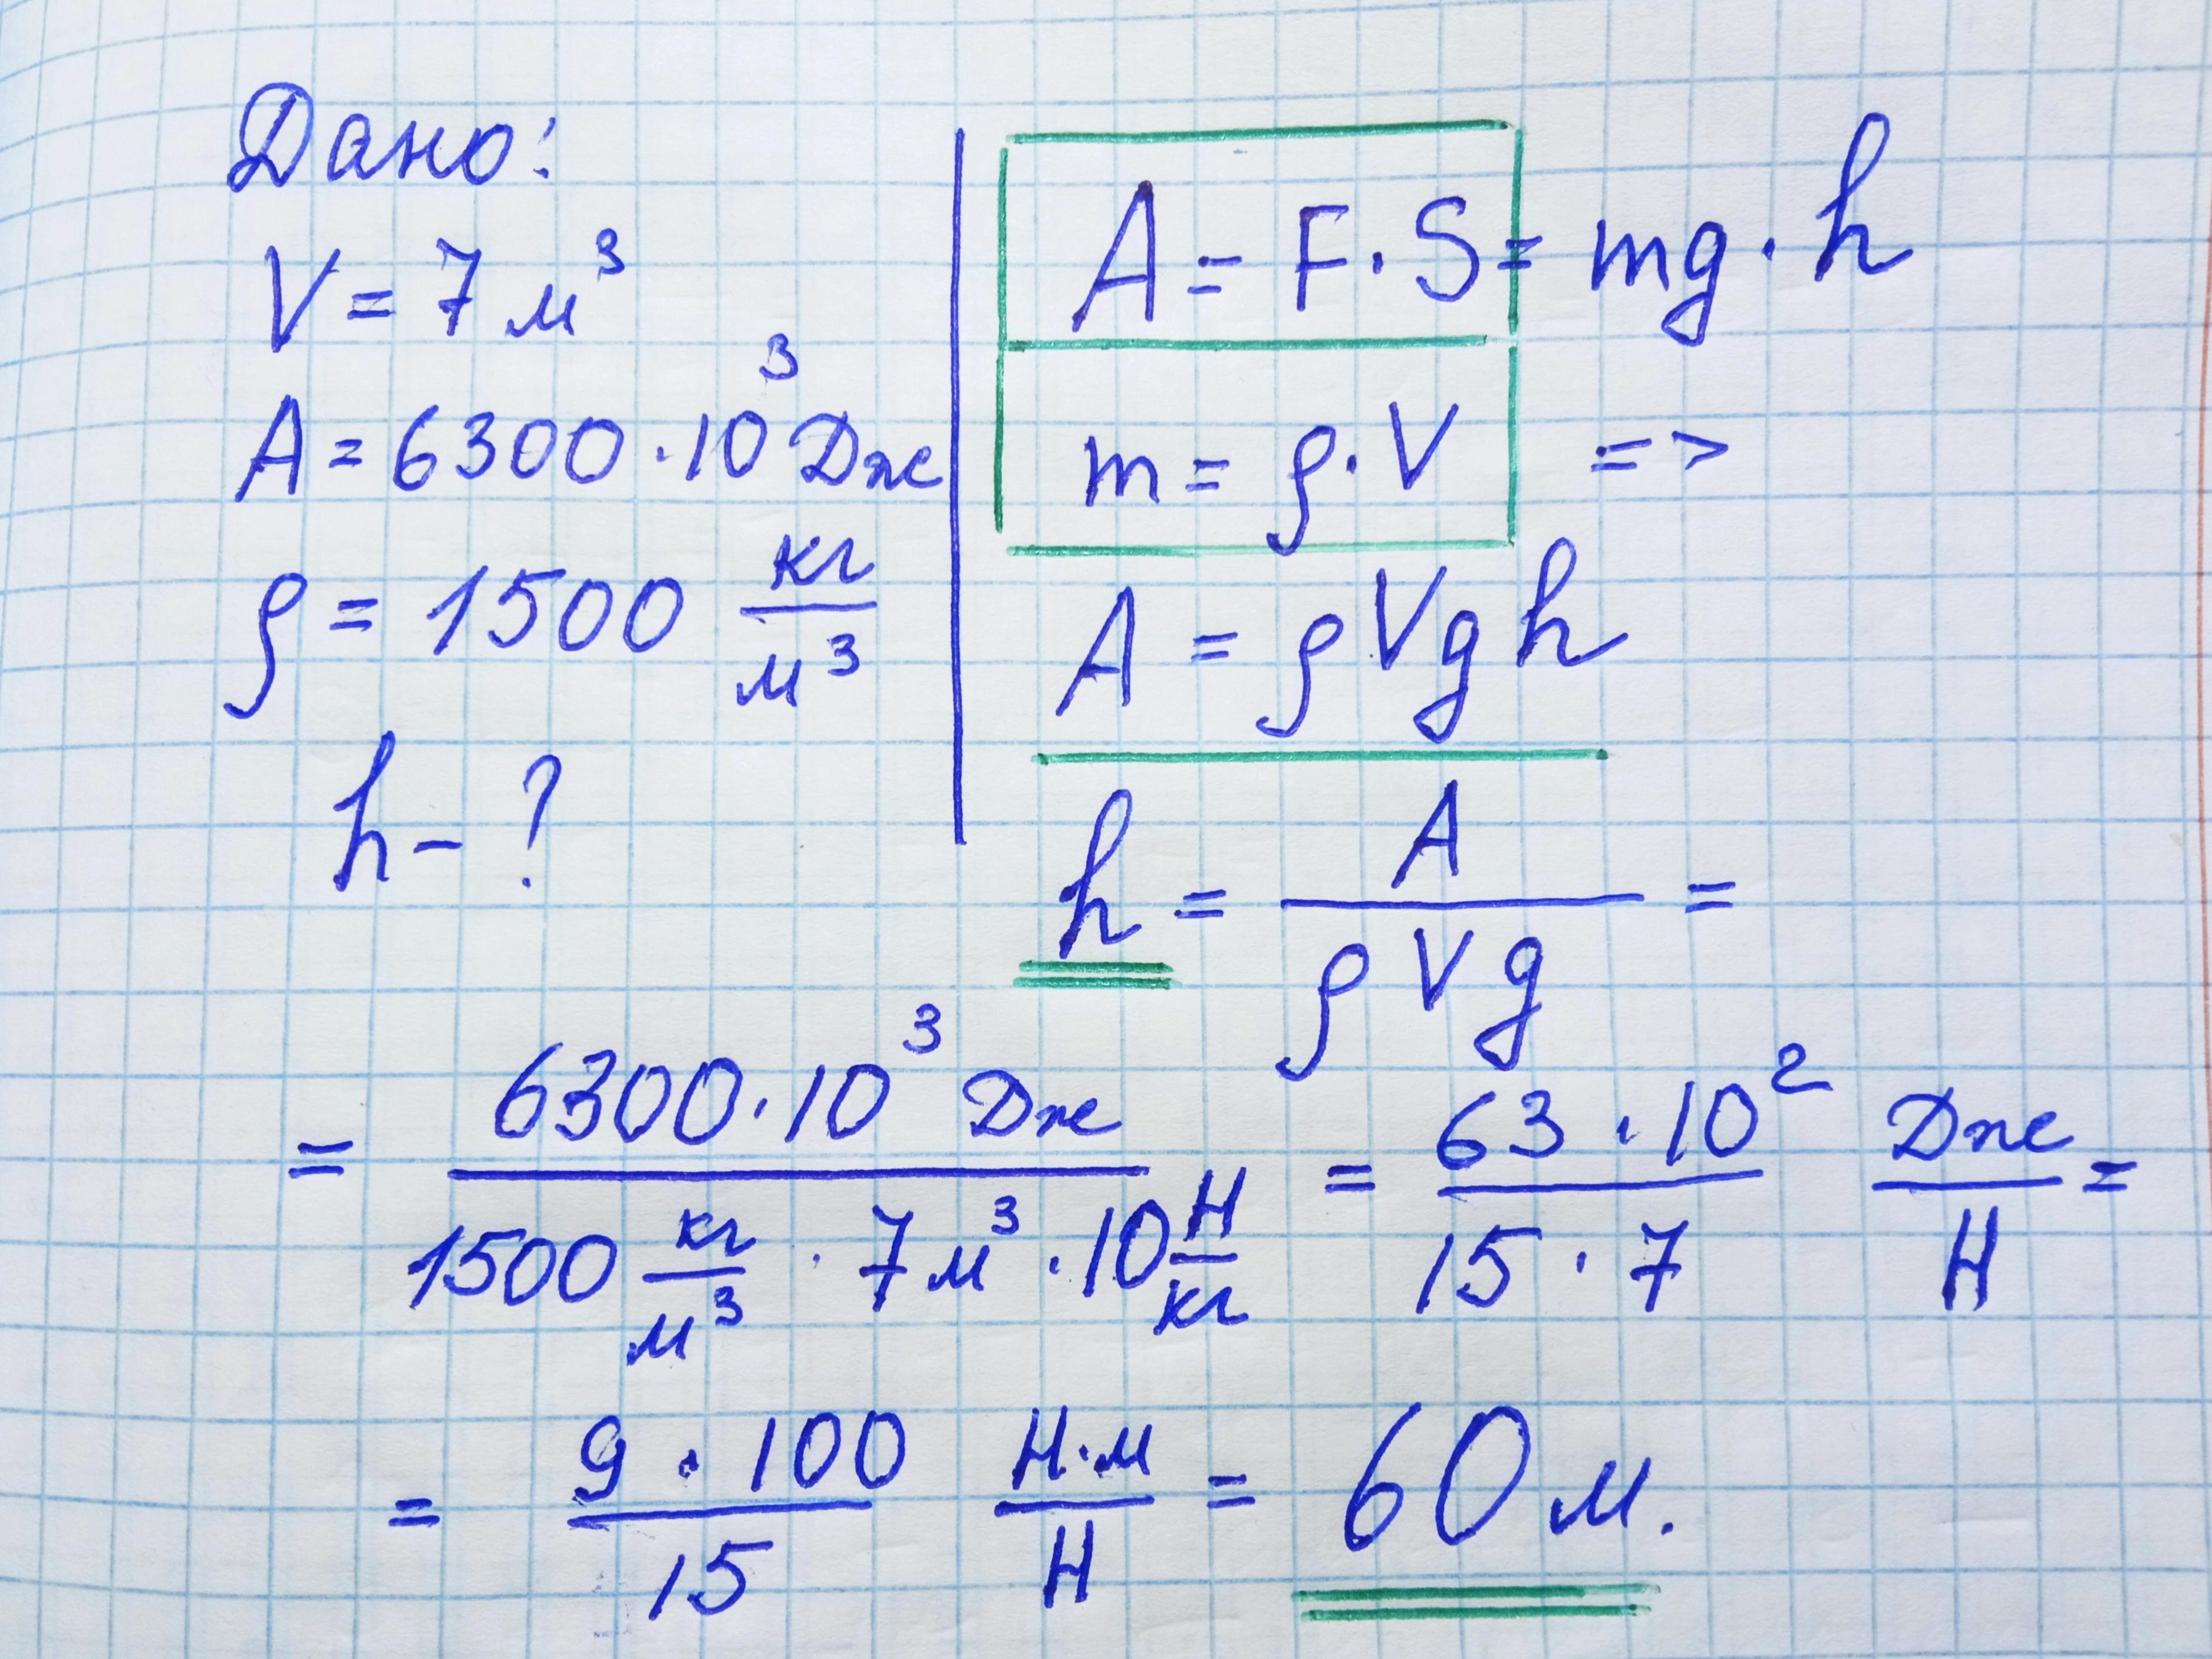 Дано:
V = 7 м³
A = 6300 · 10³ Дж
ρ = 1500 кг/м³
h - ?
A = F · S = mg · h
m = ρ · V =>
A = ρVgh
h = A / ρVg =
= 6300 · 10³ Дж / 1500 кг/м³ · 7 м³ · 10 Н/кг = 63 · 10² / 15 · 7 Дж/Н =
= 9 · 100 / 15 Н·м/Н = 60 м.